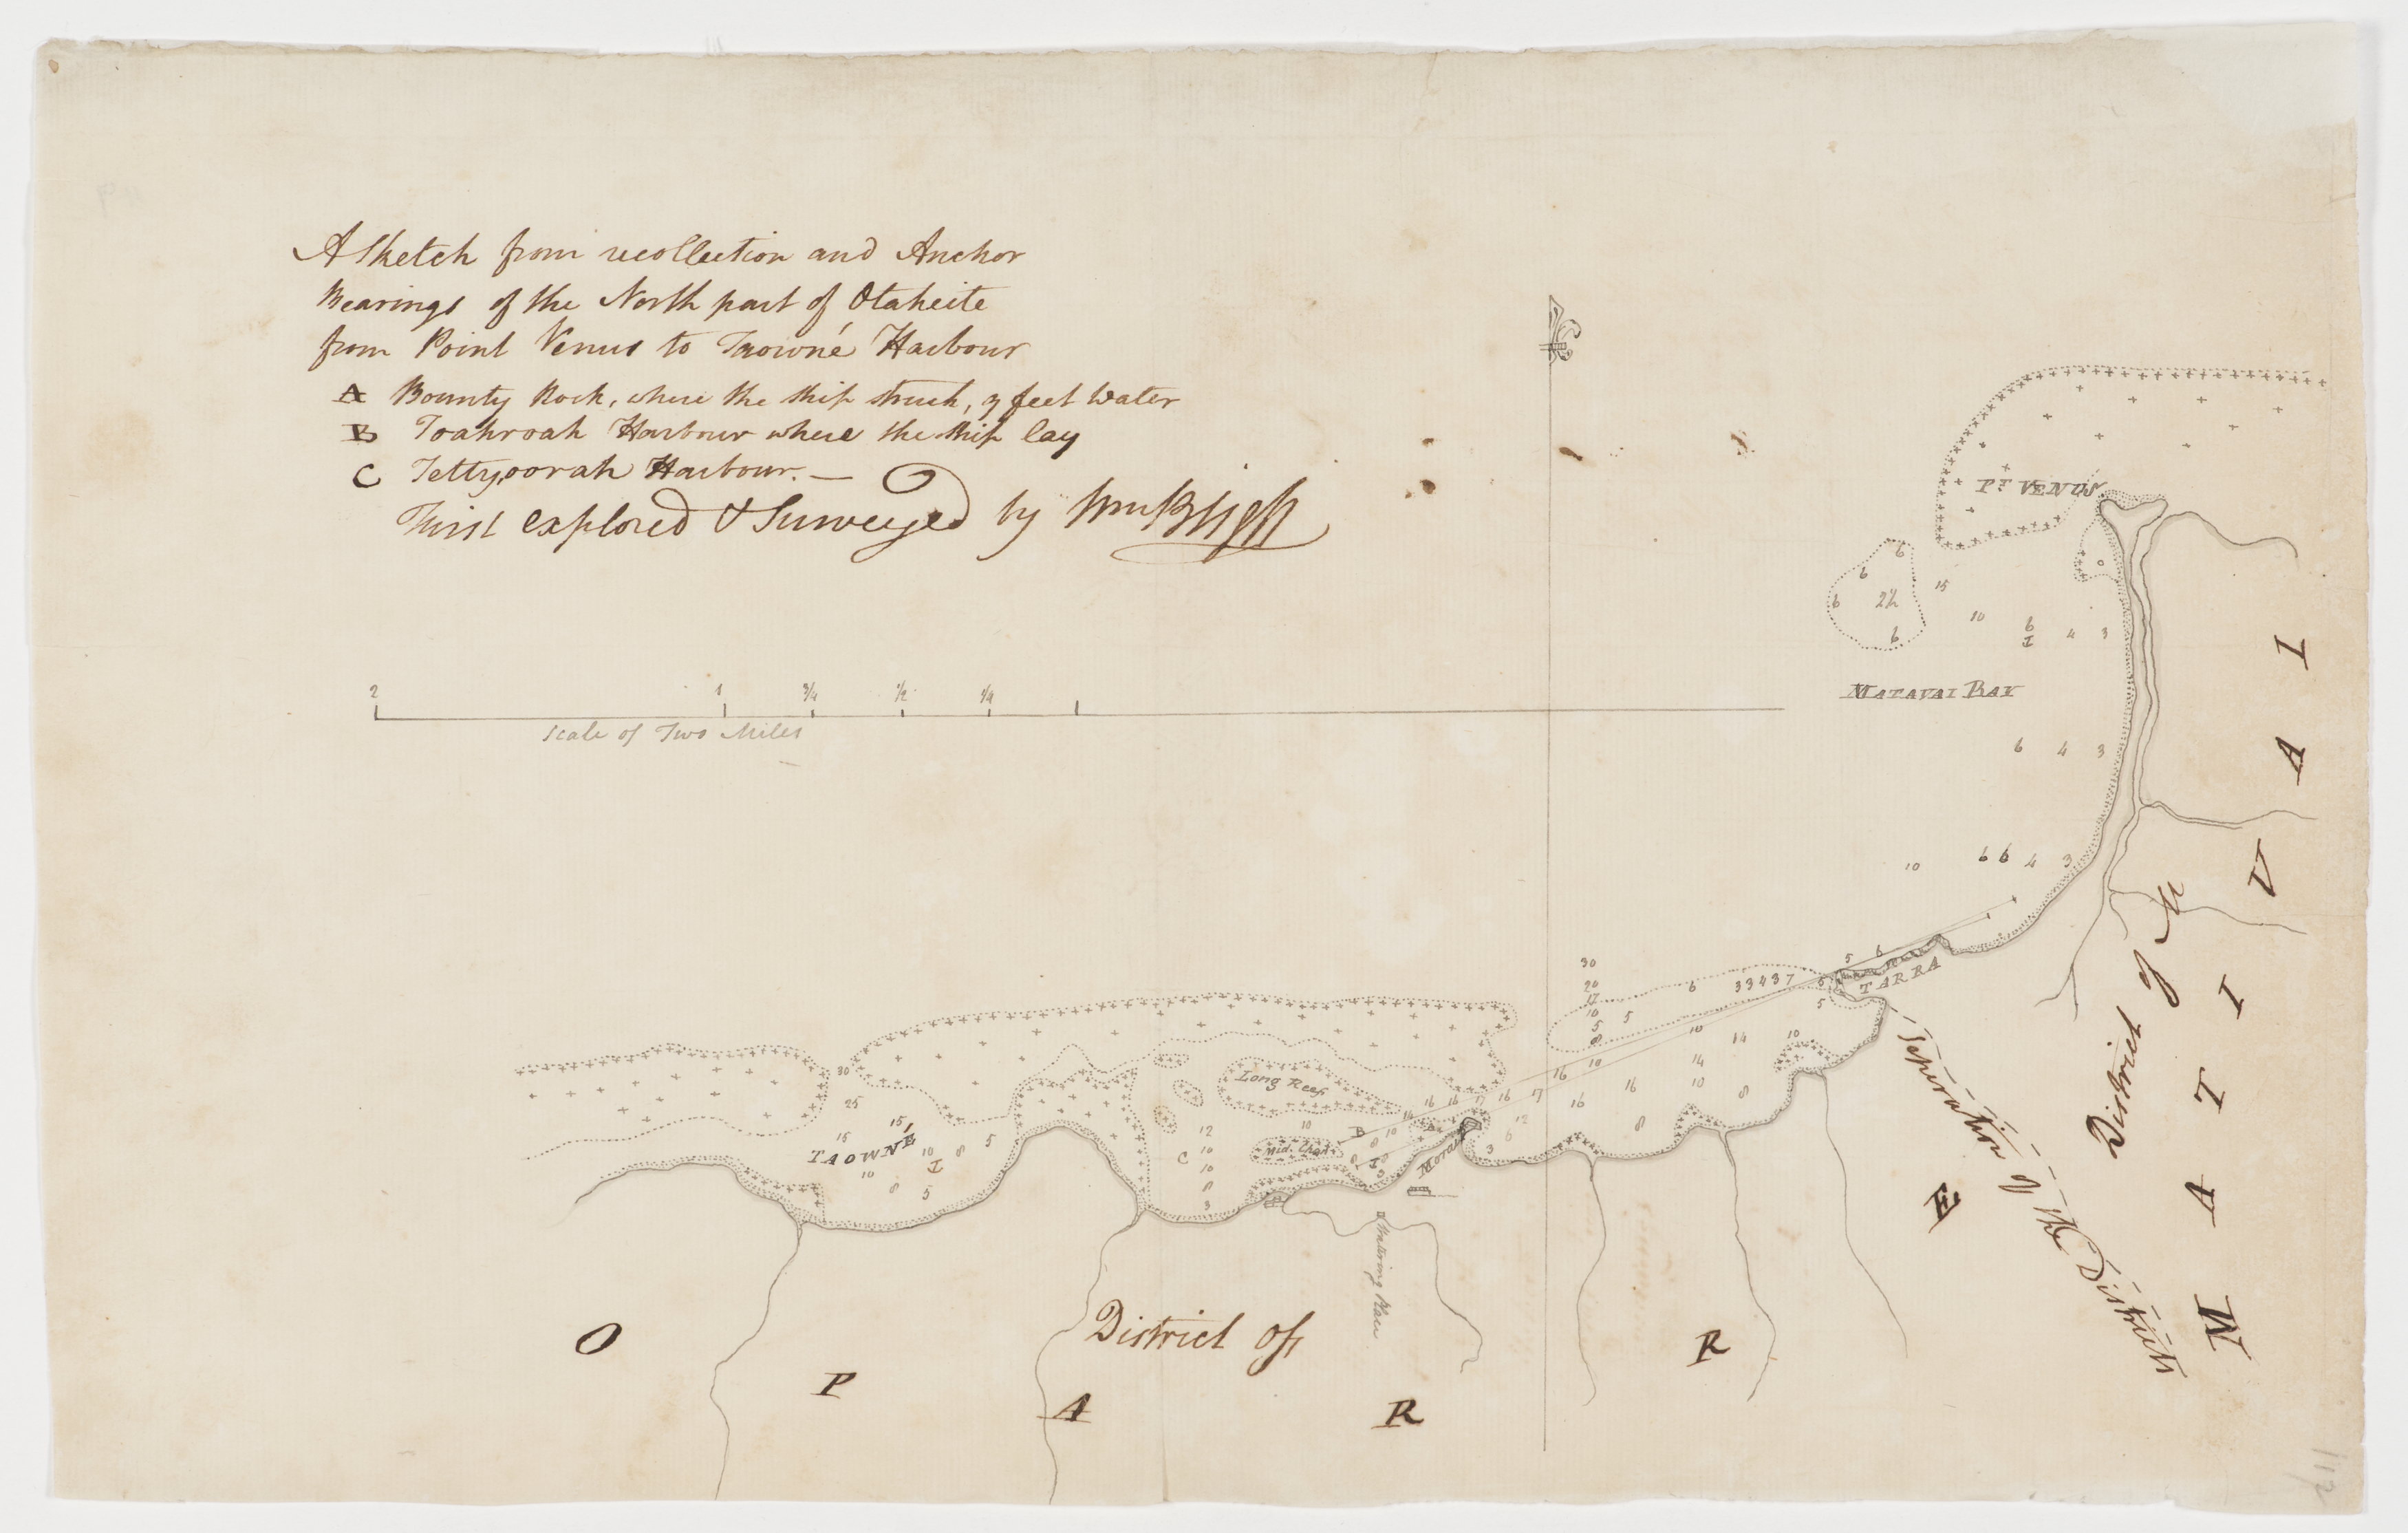 A Sketch from recollection and Anchor
Bearings of the North part of Otaheite
from Point Venus to Taowné Harbour
A Bounty Rock, where the Ship struck, 9 feet Water
B Toahroah Harbour where the Ship lay
C Tettyoorah Harbour. —
First explored & Surveyed by Wm Bligh
2 1 3/4 1/2 1/4
Scale of Two Miles
Pt. VENUS
6
6
15
6 2½
10
6
6
4 3
MATAVAI BAY
6 4 3
10 6 6 4 3
5 6
TARRA
30
20
17
10
5 5
8
6 3 3 4 3 7 6
5
10 14 10
16 10 14
16 16 17 16 17 16 10 8
14 16 8
12
6
3
30
25
15 15
TAOWNÉ
10 8 5
10
8 5
Long Reef
12
10
C 10
10
8
3
Mid. Chan
B 10
A
Morai
Watering Place
District of
O P A R R E
Seperation of the Districts
District of
M A T I V A I